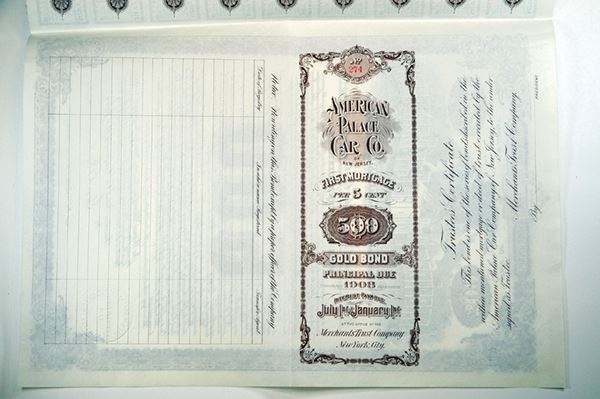 No
274
AMERICAN
PALACE
CAR CO.
OF
NEW JERSEY.
FIRST MORTGAGE
PER 5 CENT
500
GOLD BOND
PRINCIPAL DUE
1908
INTEREST PAYABLE
July 1st & January 1st
AT THE OFFICE OF THE
Merchants Trust Company
New York, City.
Date of Registry
In whose name Registered
Transfer Agent
No writing on this Bond except officer of the Company
Trustees Certificate
This bond is one of the series of bonds described in the
within mentioned mortgage or deed of trust executed by the
American Palace Car Company of New Jersey, to the under-
signed as Trustee.
Merchants Trust Company,
By
PRESIDENT